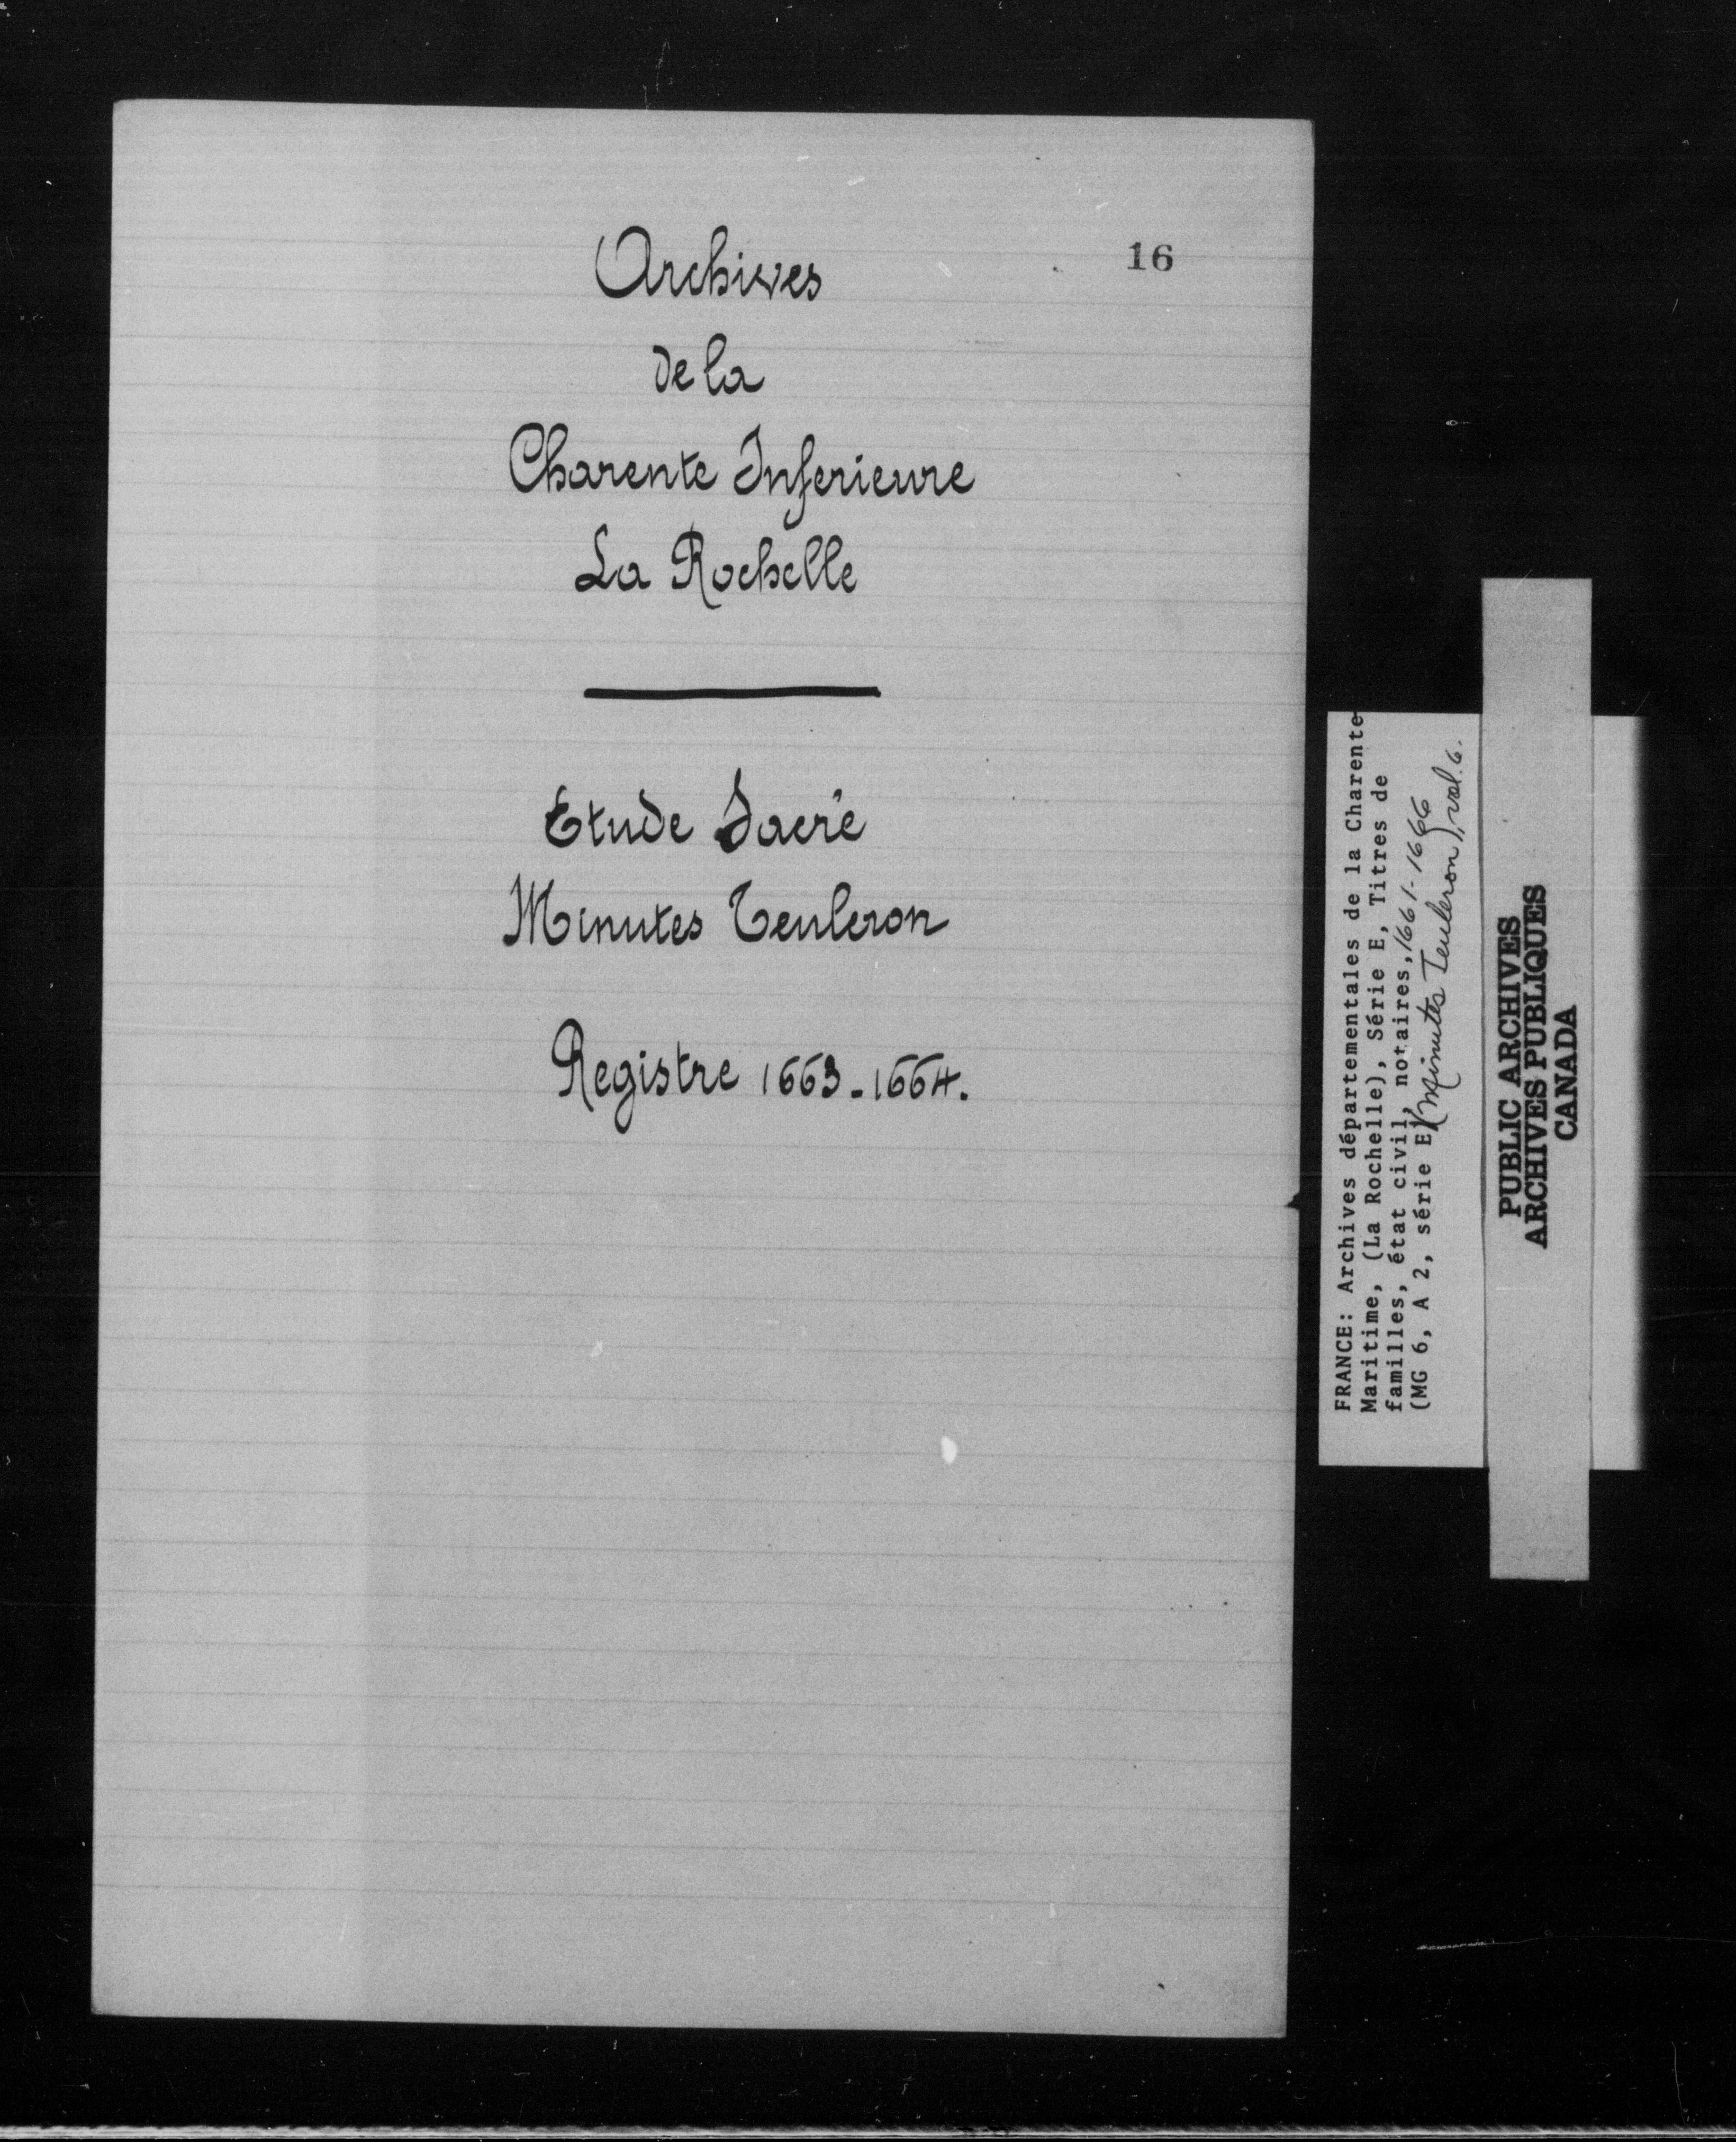 16
Archives
de la
Charente Inferieure
La Rochelle
Etude Sacré
Minutes Teuleron
Registre 1663-1664.
FRANCE: Archives départementales de la Charente-
Maritime, (La Rochelle), Série E, Titres de
familles, état civil, notaires, 1661-1666
(MG 6, A 2, série E) (Minutes Teuleron), vol. 6.
PUBLIC ARCHIVES
ARCHIVES PUBLIQUES
CANADA